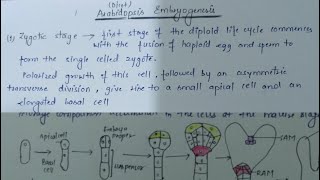 (Dicot)
Arabidopsis Embryogenesis
(1) Zygotic stage → first stage of the diploid life cycle commences
with the fusion of haploid egg and sperm to
form the single celled zygote.
Polarized growth of this cell, followed by an asymmetric
transverse division, give rise to a small apical cell and an
elongated basal cell
Apical cell
Basal cell
Embryo proper
Suspensor
SAM
RAM